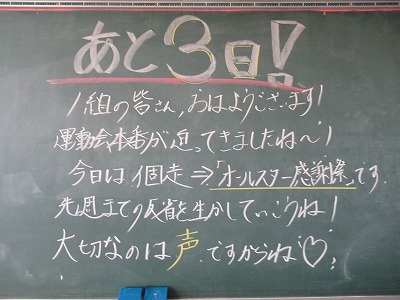 あと3日!
1組の皆さん、おはようございます!
運動会本番が近ってきましたね〜!
今日は個走⇒「オールスター感謝祭」です
先週までの反省を生かしていこうね!
大切なのは声ですからね♡!